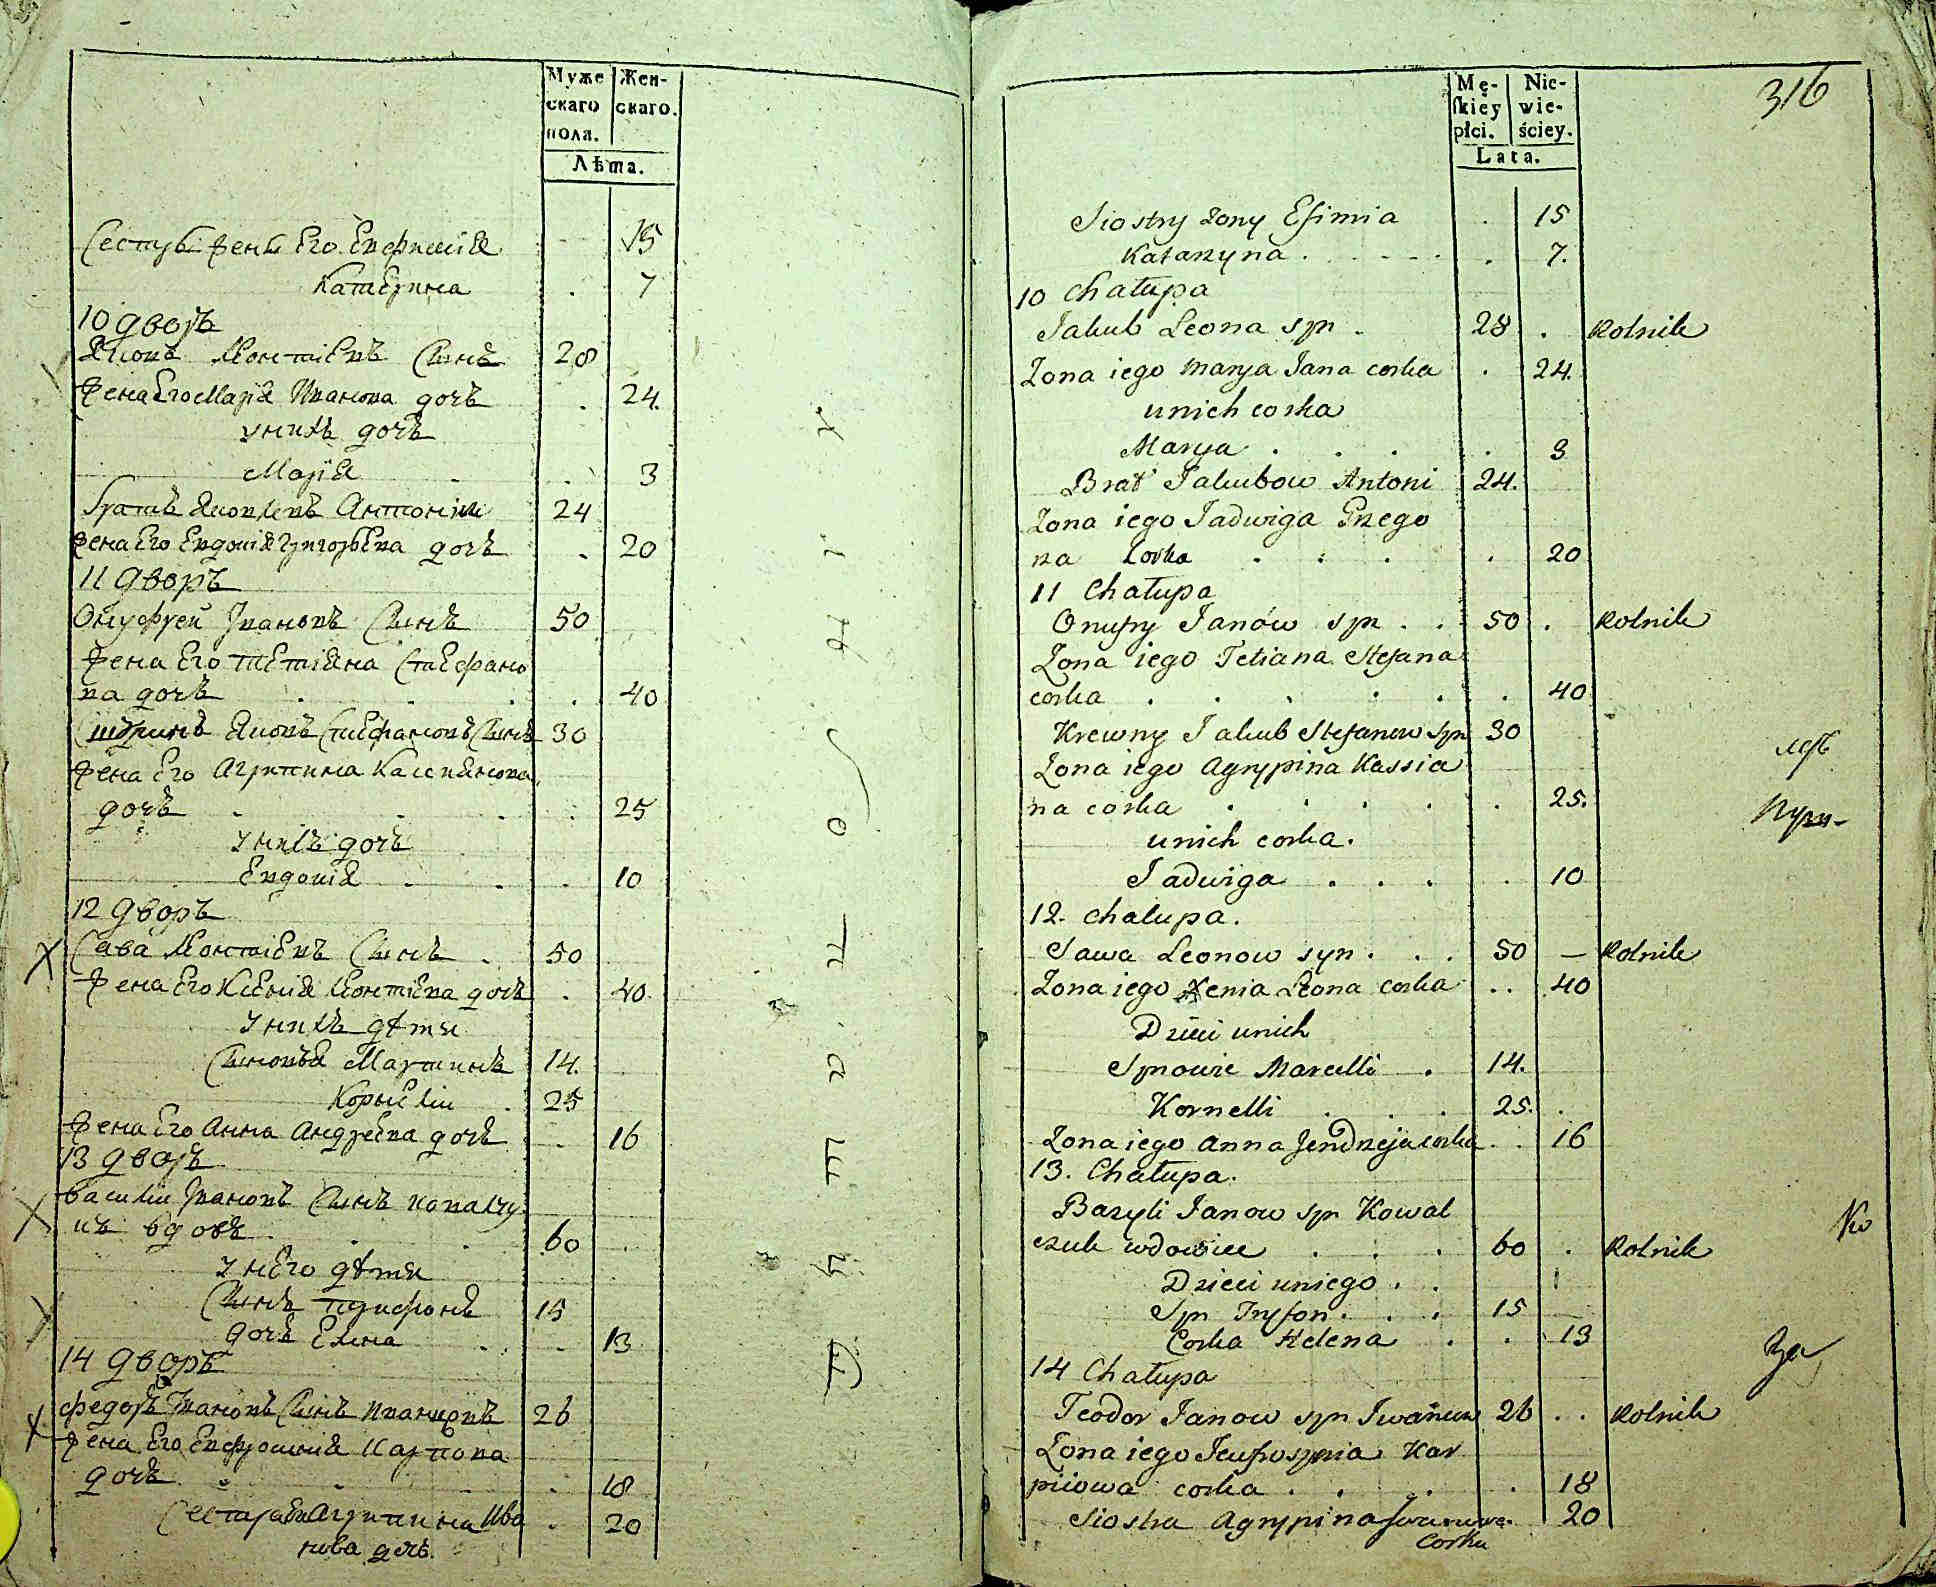 Муже
скаго
пола.
Жен-
скаго.
Лѣта.
Сестры жены Его Евфимiя 15
Катерина . 7
10 дворъ
Яковъ Леонтiевъ Сынъ 28
жена Его Марiя Иванова дочь . 24.
у нихъ дочь
Марiя . 3
Братъ Яковлевъ Антонiи 24
жена Его Евдокiя Григорьева дочь . 20
11 дворъ
Онуфрей Ивановъ Сынъ 50
жена Его Тетiяна Стефано
ва дочь . . . . 40
Яковъ Стефановъ Сынъ 30
жена Его Агрипина Касиянова
дочь . . . . 25
у нихъ дочь
Евдокiя . . . 10
12 дворъ
Сава Леонтiевъ Сынъ . 50
жена Его Ксенiя Леонтiева дочь . 40.
у нихъ дѣти
Сыновья Мартинъ 14.
Корнѣлiи . 25
жена Его Анна Андреева дочь . 16
13 дворъ
Василiи Ивановъ Сынъ Ковалчу
къ вдовъ . . . 60
у нЕго дѣти
Сынъ Трифонъ 15
дочь Елена . . 13
14 дворъ
Федоръ Ивановъ Сынъ 26
жена Его Евфросинiя Карпова
дочь . . . . 18
Сестра Агрипина Ива . 20
нова дочь.
Mę-
skiey
płci.
Nie-
wie-
ściey.
Lata.
316
Siostry zony Efimia . 15
Katarzyna . . . . . 7.
10 Chałupa
Jakub Leona syn . 28 . Rolnik
Zona iego Marya Jana corka . 24.
unich corka
Marya . . . . 3
Brat Jakubow Antoni 24.
Zona iego Jadwiga Grzego
rza Corka . . . . 20
11 Chałupa
Onufry Janów syn . . 50 . Rolnik
Zona iego Tetiana Stefana
corka . . . . . . 40
Krewny Jakub Stefanow syn 30
Zona iego Agrypina Kassia
na corka . . . . . 25.
unich corka.
Jadwiga . . . . 10
12. Chałupa.
Sawa Leonow syn . . . 50 — Rolnik
Zona iego Xenia Leona corka . . 40
Dzieci unich
Synowie Marcelli . 14.
Kornelli . . . 25. .
Zona iego Anna Jendrzeja corka . . 16
13. Chałupa.
Bazyli Janow syn Kowal
czuk wdowiec . . . 60 . Rolnik
Dzieci uniego . .
Syn Tryfon . . . 15
Corka Helena . . 13
14 Chałupa
Teodor Janow syn 26 . . Rolnik
Zona iego Kar
piiowa corka . . . . 18
Siostra Agrypina Iwanowa. 20
Corka